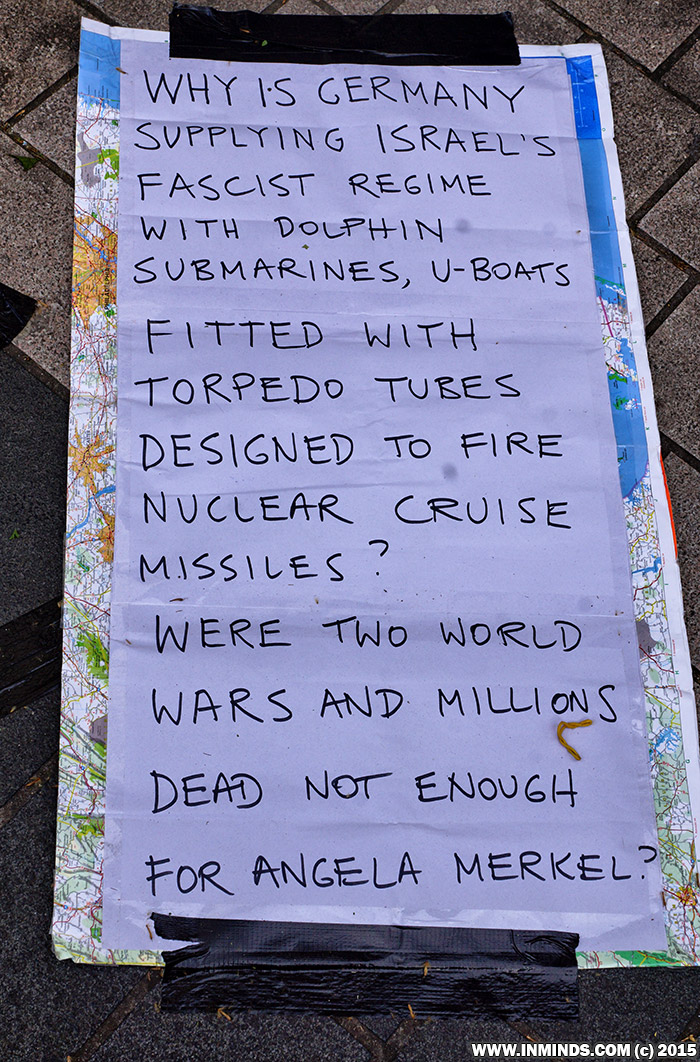 WHY IS GERMANY
SUPPLYING ISRAEL'S
FASCIST REGIME
WITH DOLPHIN
SUBMARINES, U-BOATS
FITTED WITH
TORPEDO TUBES
DESIGNED TO FIRE
NUCLEAR CRUISE
MISSILES?
WERE TWO WORLD
WARS AND MILLIONS
DEAD NOT ENOUGH
FOR ANGELA MERKEL?
WWW.INMINDS.COM (c) 2015